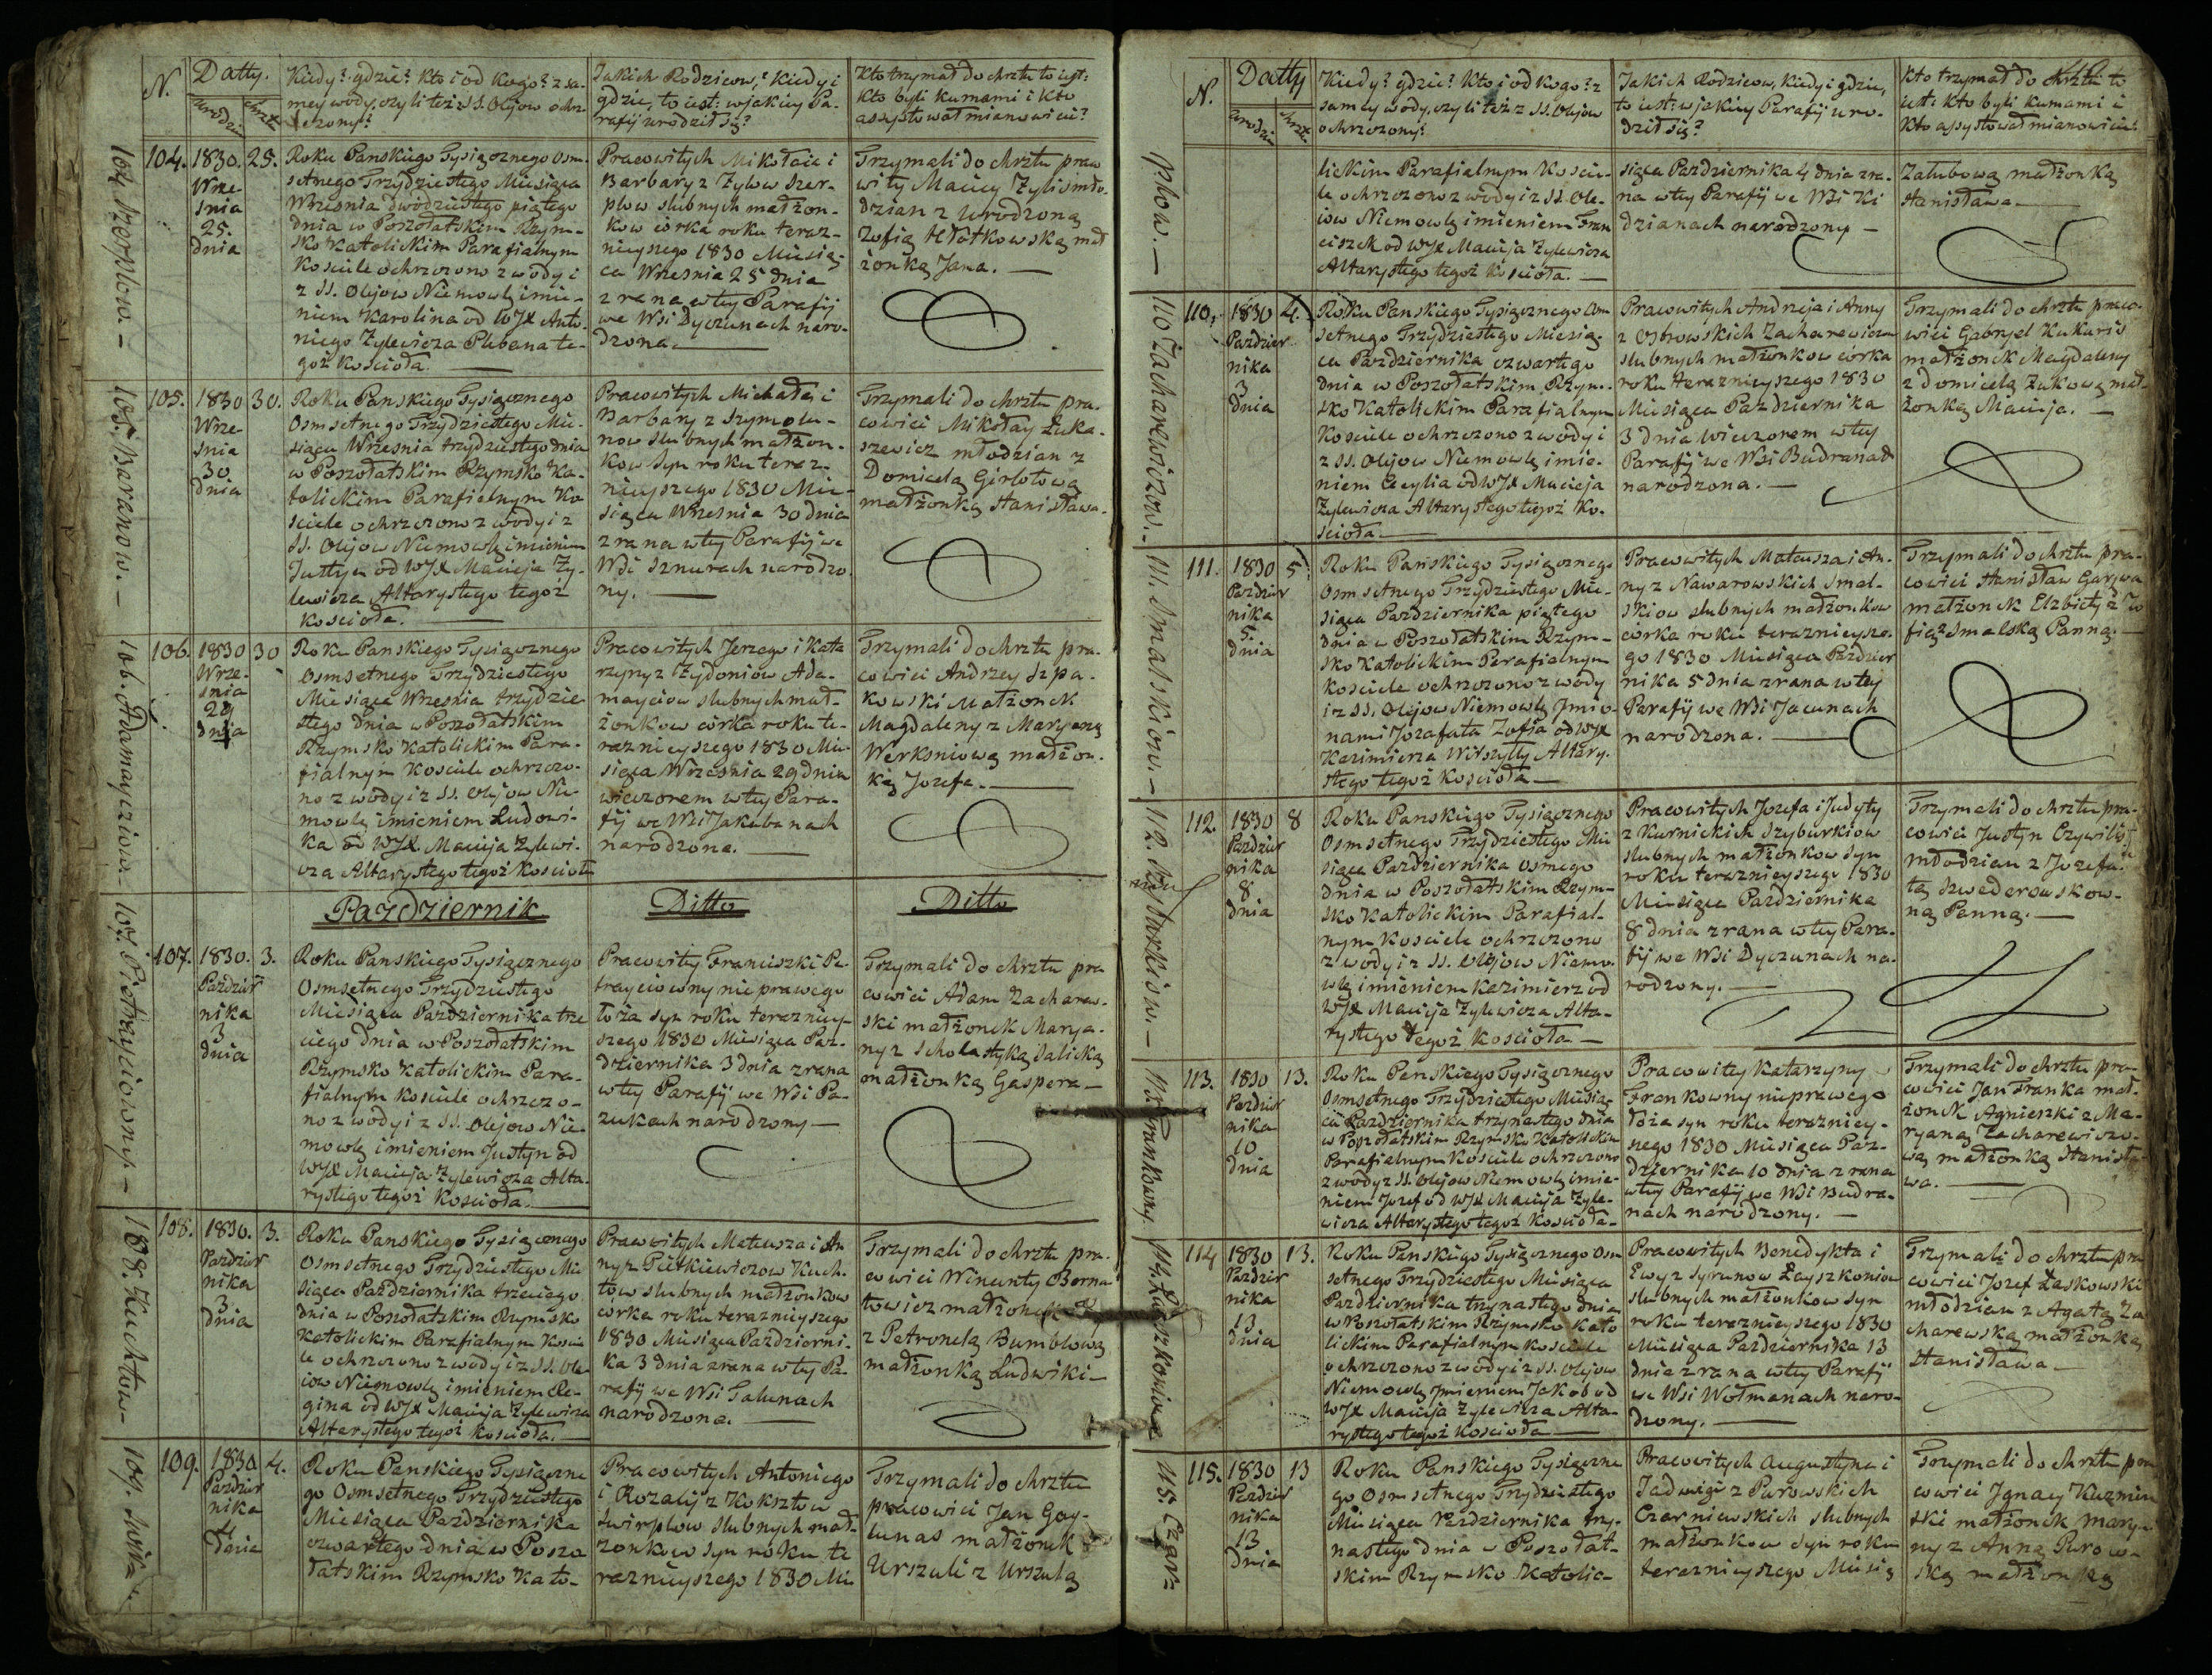 N.
Datty.
urodz.
chrztu
Kiedy? gdzie? kto i od kogo? z sa-
mey wody, czyli też z SS. Olejow ochrz-
czony?
Jakich Rodzicow, Kiedy i
gdzie, to iest: w jakiey Pa-
rafij urodził się?
Kto trzymał do chrztu to iest:
Kto byli kumami i kto
assystował mianowicie?
104. Szerpłow.
104.
1830.
Wrze-
snia
25.
dnia
25.
Roku Panskiego Tysiącznego Osm-
setnego Trzydziestego Miesiąca
Wrzesnia dwódziestego piątego
dnia w Poszołatskim Rzym-
sko Katolickim Parafialnym
Kosciele ochrzczono z wody i
z SS. Olejow Niemowlę imie-
niem Karolina od WJX Anto-
niego Żylewicza Plebana te-
goż Kościoła.
Pracowitych Mikołaia i
Barbary z Żyłow Szer-
płow slubnych małżon-
kow córka roku teraz-
nieyszego 1830 Miesią-
ca Wrzesnia 25 dnia
z rana w tey Parafij
we Wsi Dyczunach naro-
dzona.
Trzymali do chrztu praco
wity Maciey Żylis mło-
dzian z Urodzoną
Zofią Hłatkowską mał
żonką Jana.
105. Baranow.
105.
1830
Wrze
snia
30
dnia
30.
Roku Panskiego Tysiącznego
Osmsetnego Trzydziestego Mie-
siąca Wrzesnia trzydziestego dnia
w Poszołatskim Rzymsko Ka-
tolickim Parafialnym Ko-
sciele ochrzczono z wody i z
SS. Olejow Niemowlę imieniem
Justyn od WJX Macieja Ży-
lewicza Altarystego tegoż
Kościoła.
Pracowitych Michała i
Barbary z Szymelu-
now slubnych małżon-
kow syn roku teraz-
nieyszego 1830 Mie-
siąca Wrzesnia 30 dnia
z rana w tey Parafij we
Wsi Sznurach narodzo-
ny.
Trzymali do chrztu pra-
cowici Mikołay Łuka-
szewicz młodzian z
Domicelą Girlotową
małżonką Stanisława.
106. Adamayciow.
106.
1830
Wrze-
snia
29
dnia
30
Roku Panskiego Tysiącznego
Osmsetnego Trzydziestego
Miesiąca Wrzesnia trzydzie-
stego dnia w Poszołatskim
Rzymsko Katolickim Para-
fialnym Kosciele ochrzczo-
no z wody i z SS. Olejow Nie-
mowlę imieniem Ludowi-
ka od WJX. Macieja Żylewi-
cza Altarystego tegoż Kościoła
Pracowitych Jerzego i Kata
rzyny z Żydoniów Ada-
mayciow slubnych mał-
żonkow córka roku te-
raznieyszego 1830 Mie-
siąca Wrzesnia 29 dnia
wieczorem w tey Para-
fij we Wsi Jakubanach
narodzona.
Trzymali do chrztu pra-
cowici Andrzey Szpa-
kowski Małżonek
Magdaleny z Maryaną
Werksniową małżon-
ką Jozefa.
Pazdziernik
Ditto
Ditto
107. Pietrayciowny.
107.
1830.
Pazdzier
nika
3
dnia
3.
Roku Panskiego Tysiącznego
Osmsetnego Trzydziestego
Miesiąca Pazdziernika trze
ciego dnia w Poszołatskim
Rzymsko Katolickim Para-
fialnym Kosciele ochrzczo-
no z wody i z SS. Olejow Nie-
mowlę imieniem Justyn od
WJX Macieja Żylewicza Alta-
rystego tegoż Kościoła.
Pracowitey Franciszki Pe-
trayciowny nieprawego
łoża syn roku terazniey-
szego 1830 Miesiąca Paz-
dziernika 3 dnia z rana
w tey Parafij we Wsi Pa-
zukach narodzony
Trzymali do chrztu pra
cowici Adam Zacharew-
ski małżonek Marya-
ny z Scholastyką Salicką
małżonką Gaspera
108. Kuchtow
108.
1830.
Pazdzier
nika
3
dnia
3.
Roku Panskiego Tysiącznego
Osmsetnego Trzydziestego Mie
siąca Pazdziernika trzeciego
dnia w Poszołatskim Rzymsko
Katolickim Parafialnym Koscie
le ochrzczono z wody i z SS. Ole-
iow Niemowlę imieniem Re-
gina od WJX Macieja Żylewicza
Altarystego tegoż Kościoła.
Pracowitych Mateusza i An
ny z Pietkiewiczow Kuch-
tow slubnych małżonkow
córka roku teraznieyszego
1830 Miesiąca Pazdzierni-
ka 3 dnia z rana w tey Pa-
rafij we Wsi Galunach
narodzona.
Trzymali do chrztu pra-
cowici Wincenty Borna
towicz małżonek
z Petronelą Bumblową
małżonką Ludwiki
109.
109.
1830
Pazdzier
nika
4
dnia
4.
Roku Panskiego Tysiączne
go Osmsetnego Trzydziestego
Miesiąca Pazdziernika
czwartego dnia w Poszo
łatskim Rzymsko Kato-
Pracowitych Antoniego
i Rozalij z Koksztow
Swirpłow slubnych mał-
żonkow syn roku te
raznieyszego 1830 Mie
Trzymali do chrztu
pracowici Jan Gay-
lunas małżonek
Urszuli z Urszulą
N.
Datty
urodz.
chrzt.
Kiedy? gdzie? Kto i od kogo? z
samey wody, czyli też z SS. Olejow
ochrzczony?
Jakich Rodzicow, Kiedy i gdzie,
to iest: w jakiey Parafij uro-
dził się?
Kto trzymał do chrztu to
iest: kto byli kumami i
kto assystował mianowicie?
płow.
lickim Parafialnym Koscie-
le ochrzczono z wody i z SS. Ole-
iow Niemowlę imieniem Fran
ciszek od WJX Macieja Żylewicza
Altarystego tegoż Kościoła.
siąca Pazdziernika 4 dnia z ra-
na w tey Parafij we Wsi Ki
dzianach narodzony
Załubową małżonką
Stanisława.
110 Zacharewiczow.
110.
1830
Pazdzier
nika
3
dnia
4.
Roku Panskiego Tysiącznego Osm
setnego Trzydziestego Miesią-
ca Pazdziernika czwartego
dnia w Poszołatskim Rzym-
sko Katolickim Parafialnym
Kosciele ochrzczono z wody i
z SS. Olejow Niemowlę imie-
niem Cecylia od WJX Macieja
Żylewicza Altarystego tegoż Ko-
ścioła.
Pracowitych Andrzeja i Anny
z Ostrowskich Zacharewiczow
slubnych małżonkow córka
roku teraznieyszego 1830
Miesiąca Pazdziernika
3 dnia wieczorem w tey
Parafij we Wsi Budranach
narodzona.
Trzymali do chrztu praco-
wici Gabryel Kukuris
małżonek Magdaleny
z Domicelą Żukową mał-
żonką Macieja.
111. Smalskiow.
111.
1830
Pazdzier
nika
5.
dnia
5.
Roku Panskiego Tysiącznego
Osmsetnego Trzydziestego Mie-
siąca Pazdziernika piątego
dnia w Poszołatskim Rzym-
sko Katolickim Parafialnym
Kosciele ochrzczono z wody
i z SS. Olejow Niemowlę Jmio-
nami Jozafata Zofia od WJX
Kazimierza Witszytty Altary-
stego tegoż Kościoła
Pracowitych Mateusza i An-
ny z Nawarowskich Smal-
skiow slubnych małżonkow
córka roku teraznieysze-
go 1830 Miesiąca Pazdzier
nika 5 dnia z rana w tey
Parafij we Wsi Jacunach
narodzona.
Trzymali do chrztu pra-
cowici Stanisław Garywa
małżonek Elzbiety z Zo
fią Smalską Panną.
112.
112.
1830
Pazdzier
nika
8
dnia
8
Roku Panskiego Tysiącznego
Osmsetnego Trzydziestego Mie
siąca Pazdziernika Osmego
dnia w Poszołatskim Rzym-
sko Katolickim Parafial-
nym Kosciele ochrzczono
z wody i z SS. Olejow Niemo-
wlę imieniem Kazimierz od
WJX Macieja Żylewicza Alta-
rystego tegoż Kościoła
Pracowitych Jozefa i Judyty
z Kurnickich Szyburkiow
slubnych małżonkow syn
roku teraznieyszego 1830
Miesiąca Pazdziernika
8 dnia z rana w tey Para-
fij we Wsi Dyczunach na-
rodzony.
Trzymali do chrztu pra-
cowici Justyn Czywilis
młodzian z Jozefa-
tą Szwederowskow-
ną Panną.
113. Frankowny.
113.
1830
Pazdzier
nika
10
dnia
13.
Roku Panskiego Tysiącznego
Osmsetnego Trzydziestego Miesią-
ca Pazdziernika trzynastego dnia
w Poszołatskim Rzymsko Katolickim
Parafialnym Kosciele ochrzczono
z wody z SS. Olejow Niemowlę imie-
niem Jozef od WJX Macieja Żyle-
wicza Altarystego tegoż Kościoła
Pracowitey Katarzyny
Frankowny nieprawego
łoża syn roku terazniey-
szego 1830 Miesiąca Paz-
dziernika 10 dnia z rana
w tey Parafij we Wsi Budra-
nach narodzony.
Trzymali do chrztu pra-
cowici Jan Franka mał-
żonek Agnieszki z Ma-
ryaną Zacharewiczo-
wą małżonką Stanisła-
wa.
114. Łayszkoniow
114
1830
Pazdzier
nika
13
dnia
13.
Roku Panskiego Tysiącznego Osm
setnego Trzydziestego Miesiąca
Pazdziernika trzynastego dnia
w Poszołatskim Rzymsko Kato
lickim Parafialnym Kosciele
ochrzczono z wody i z SS. Olejow
Niemowlę Jmieniem Jakob od
WJX Macieja Żylewicza Alta-
rystego tegoż Kościoła
Pracowitych Benedykta i
Ewy z Syrunow Łayszkoniow
slubnych małżonkow syn
roku teraznieyszego 1830
Miesiąca Pazdziernika 13
dnia z rana w tey Parafij
we Wsi Wołmanach naro-
dzony.
Trzymali do chrztu pra
cowici Jozef Łaskowski
młodzian z Agatą Za
charewską małżonką
Stanisława
115. Czar=
115.
1830
Pazdzier
nika
13
dnia
13
Roku Panskiego Tysiączne
go Osmsetnego Trzydziestego
Miesiąca Pazdziernika trzy-
nastego dnia w Poszołat-
skim Rzymsko Katolic-
Pracowitych Augustyna i
Jadwigi z Purowskich
Czarniewskich slubnych
małżonkow syn roku
teraznieyszego Miesią
Trzymali do chrztu pra
cowici Jgnacy Kuzmin
ski małżonek Marya
ny z Anną Purow-
ską małżonką